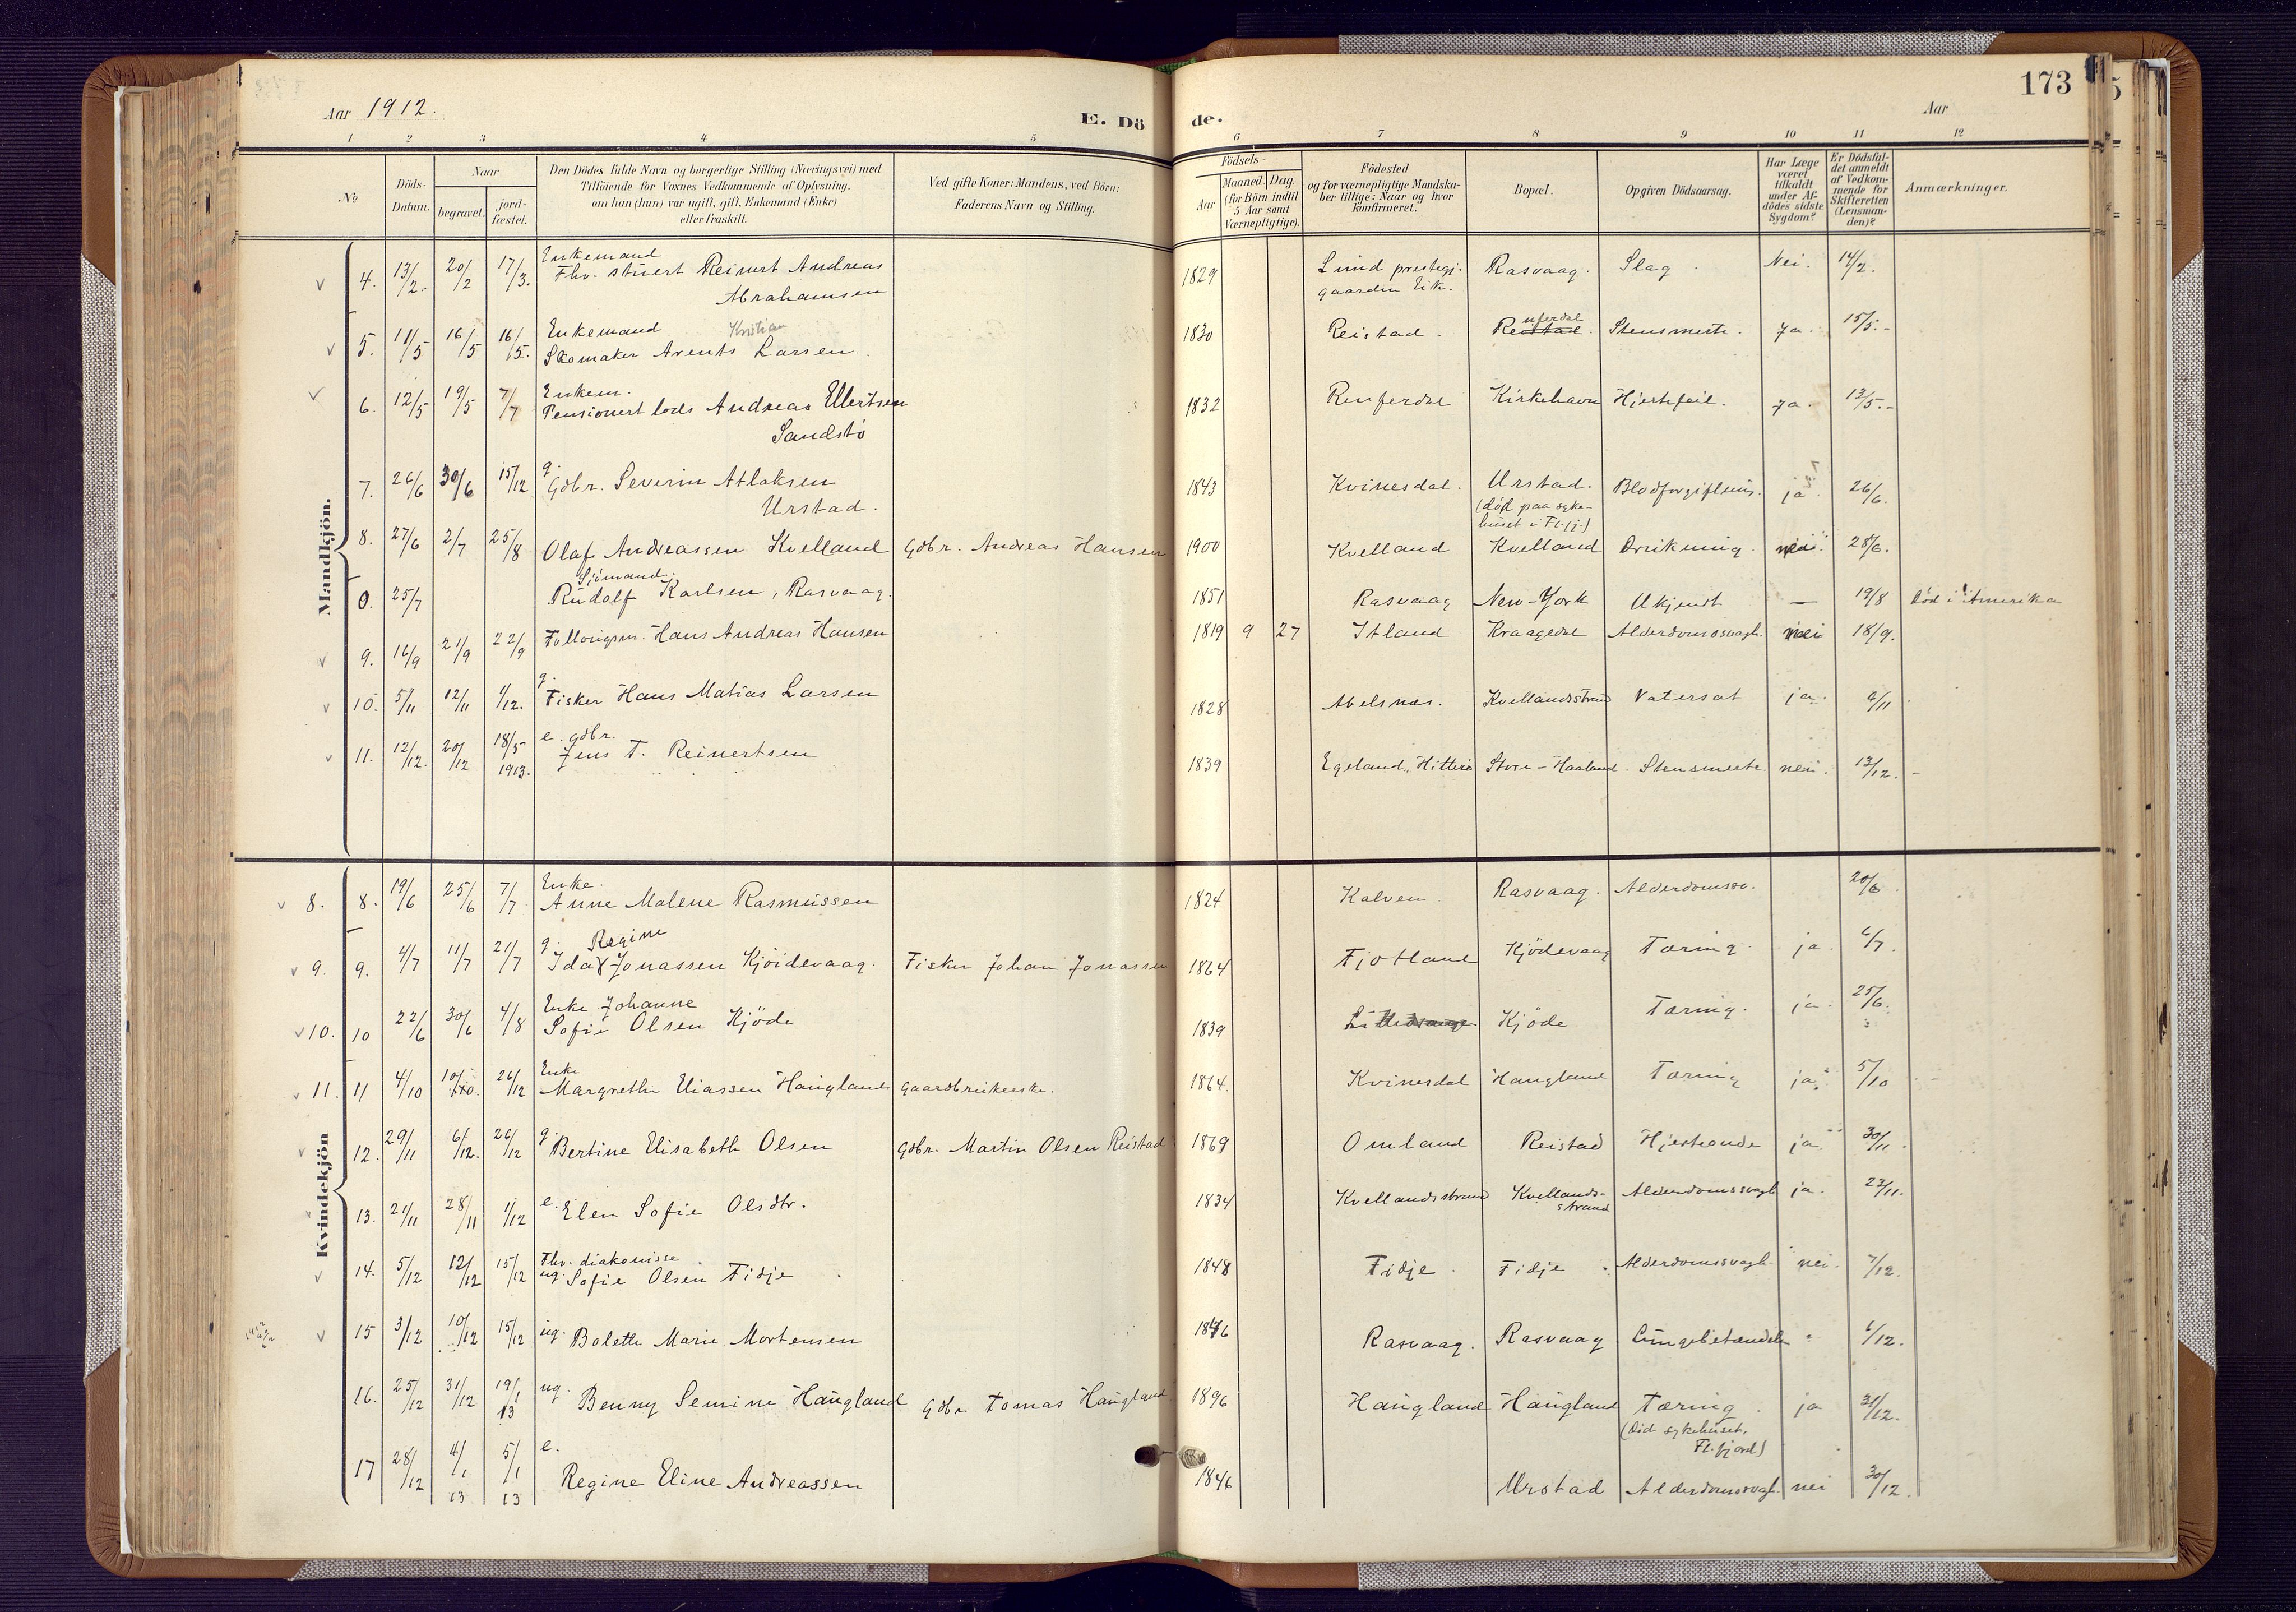 173
Aar 1912.
E. Döde.
Aar
1 2 3 4 5 6 7 8 9 10 11 12
No
Döds-Datum.
Naar
begravet.
jord-fæstet.
Den Dödes fulde Navn og borgerlige Stilling (Næringsvei) med
Tilföiende for Voxnes Vedkommende af Oplysning,
om han (hun) var ugift, gift, Enkemand (Enke)
eller fraskilt.
Ved gifte Koner: Mandens, ved Börn:
Faderens Navn og Stilling.
Födsels-
Aar
Maaned. Dag.
(for Börn indtil
5 Aar samt
Værnepligtige).
Födested
og for værnepligtige Mandska-
ber tillige: Naar og hvor
konfirmeret.
Bopæl.
Opgiven Dödsaarsag.
Har Læge
været
tilkaldt
under Af-
dödes sidste
Sygdom?
Er Dödsfal-
det anmeldt
af Vedkom-
mende for
Skifteretten
(Lensman-
den)?
Anmærkninger.
Mandkjön.
Enkemand
4. 13/2. 20/2 17/3. Fhv. stuert Reinert Andreas 1829 Lund prestegj. Rasvaag. Slag. Nei. 14/2.
Abrahamsen gaarden Eik.
Enkemand Kristian uferdal
5. 11/5 16/5 16/5. Skomaker Arents Larsen. 1830 Reistad. Reistad. Stensmerte. ja. 15/5.-
Enkem.
6. 12/5 19/5 7/7 Pensionert lods Andreas Ellertsen 1832 Renferdal Kirkehavn Hjertefeil. ja. 13/5.-
Sandstö
g.
7. 26/6 30/6 15/12 Gdbr. Severin Atlaksen 1843 Kvinesdal. Urstad. Blodforgiftning. ja. 26/6.
Urstad. (död paa syke-
huset i Fl.fj)
8. 27/6 2/7 25/8 Olaf Andreassen Kvelland Gdbr. Andreas Hansen 1900 Kvelland Kvelland Drukning. nei. 28/6.
Sjömand.
0. 25/7 Rudolf Karlsen, Rasvaag. 1851 Rasvaag New-York Ukjendt — 19/8 Död i Amerika
9. 16/9 21/9 22/9 Hans Andreas Hansen 1819 9 27 Itland Kraagedal Alderdomssvagh. nei 18/9.
g.
10. 5/11 12/11 1/12. Fisker Hans Matias Larsen 1828 Abelsnæs. Kvellandsstrand Vatersot ja. 6/11
e. gdbr.
11. 12/12. 20/12 18/5 1913. Jens T. Reinertsen 1839 Egeland, Hitterö Store-Haaland. Stensmerte nei. 13/12.-
Kvindekjön
Enke.
8. 8. 19/6 25/6 7/7 Anne Malene Rasmussen 1824 Kalven. Rasvaag. Alderdomssv. 20/6.
g. Regine
9. 9. 4/7 11/7 21/7 Ida Jonassen Kjöidevaag. Fisker Johan Jonassen 1864 Fjotland Kjödevaag Tæring. ja. 6/7.
Enke Johanne
10. 10 22/6 30/6 4/8 Sofie Olsen Kjöde 1839 Kjöde Tæring. ja. 25/6.
Enke
11. 11 4/10 10/10. 26/12 Margrethe Eliassen Haugland gaardbrukerske. 1864. Kvinesdal Haugland Tæring ja. 5/10
12. 29/11 6/12. 26/12 g. Bertine Elisabeth Olsen Gdbr. Martin Olsen Reistad 1869 Omland Reistad Hjerteonde ja. 30/11.
13. 21/11 28/11 1/12 e. Elen Sofie Olsdtr. 1834 Kvellandsstrand Kvellands- Alderdomssvagh ja. 22/11.
strand
Fhv. diakonisse
14. 5/12 12/12 15/12 ug. Sofie Olsen Fidje 1848 Fidje. Fidje Alderdomssvagh. nei. 7/12.
15 3/12 10/12 15/12 ug. Bolette Marie Mortensen 1846 Rasvaag. Rasvaag Lungebetændelse 6/12.
16. 25/12 31/12 19/1 13 ug. Benny Semine Haugland Gdbr. Tomas Haugland 1896 Haugland Haugland Tæring. ja 31/12.
(död sykehuset,
Fl.fjord)
17 28/12 4/1 13 5/1 13 e. Regine Eline Andreassen 1846 Urstad Alderdomssvagh. nei 30/12.